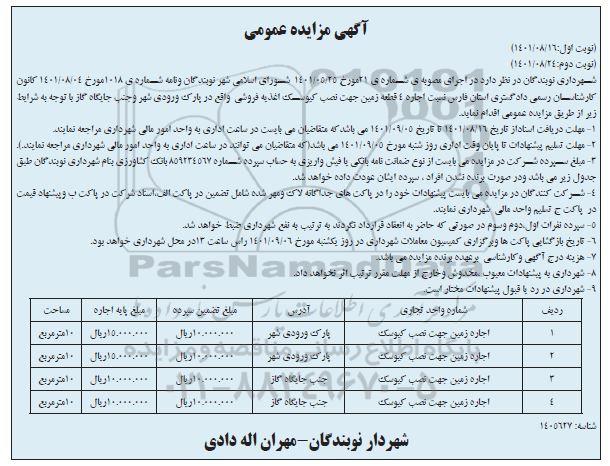 آگهی مزایده عمومی
(نوبت اول:۱۴۰۱/۰۸/۱۶)
(نوبت دوم:۱۴۰۱/۰۸/۲۴)
شهرداری نوبندگان در نظر دارد در اجرای مصوبه ی شماره ی ۲۱مورخ ۱۴۰۱/۰۵/۲۵ شورای اسلامی شهر نوبندگان ونامه شماره ی ۱۰۱۸مورخ ۱۴۰۱/۰۸/۰۴ کانون
کارشناسان رسمی دادگستری استان فارس نسبت اجاره ۴ قطعه زمین جهت نصب کیوسک اغذیه فروشی واقع در پارک ورودی شهر وجنب جایگاه گاز با توجه به شرایط
زیر از طریق مزایده عمومی اقدام نماید.
۱– مهلت دریافت اسناداز تاریخ ۱۴۰۱/۰۸/۱۶ تا تاریخ ۱۴۰۱/۰۹/۰۵ می باشدکه متقاضیان می بایست در ساعت اداری به واحد امور مالی شهرداری مراجعه نمایند.
۲– مهلت تسلیم پیشنهادات تا پایان وقت اداری روز شنبه مورخ ۱۴۰۱/۰۹/۰۵ می باشد(که متقاضیان می توانند در ساعت اداری به واحد امور مالی شهرداری مراجعه نمایند.).
۳– مبلغ سپرده شرکت در مزایده می بایست از نوع ضمانت نامه بانکی یا فیش واریزی به حساب سپرده شماره ۸۵۹۲۳۴۵۶۷ بانک کشاورزی بنام شهرداری نوبندگان طبق
جدول زیر می باشد ودر صورت برنده نشدن افراد ، سپرده ایشان عودت داده خواهد شد.
۴– شرکت کنندگان در مزایده می بایست پیشنهادات خود را در پاکت های جداگانه لاک ومهر شده شامل تضمین در پاکت الف،اسناد شرکت در پاکت ب وپیشنهاد قیمت
در پاکت ج تسلیم واحد مالی شهرداری نمایند.
۵– سپرده نفرات اول،دوم وسوم در صورتی که حاضر به انعقاد قرارداد نگردند به ترتیب به نفع شهرداری ضبط خواهد شد.
۶– تاریخ بازگشایی پاکت ها وبرگزاری کمیسیون معاملات شهرداری در روز یکشنبه مورخ ۱۴۰۱/۰۹/۰۶ راس ساعت ۱۳در محل شهرداری خواهد بود.
۷– هزینه درج آگهی وکارشناسی برعهده برنده مزایده می باشد.
۸– شهرداری به پیشنهادات معیوب ،مخدوش وخارج از مهلت مقرر ترتیب اثر نخواهد داد.
۹– شهرداری در رد یا قبول پیشنهادات مختار است.
ردیف شماره واحد تجاری آدرس مبلغ تضمین سپرده مبلغ پایه اجاره مساحت
۱ اجاره زمین جهت نصب کیوسک پارک ورودی شهر ۱۰.۰۰۰.۰۰۰ریال ۱۵.۰۰۰.۰۰۰ریال ۱۰مترمربع
۲ اجاره زمین جهت نصب کیوسک پارک ورودی شهر ۱۰.۰۰۰.۰۰۰ریال ۱۵.۰۰۰.۰۰۰ریال ۱۰مترمربع
۳ اجاره زمین جهت نصب کیوسک جنب جایگاه گاز ۱۰.۰۰۰.۰۰۰ریال ۱۰.۰۰۰.۰۰۰ریال ۱۰مترمربع
۴ اجاره زمین جهت نصب کیوسک جنب جایگاه گاز ۱۰.۰۰۰.۰۰۰ریال ۱۰.۰۰۰.۰۰۰ریال ۱۰مترمربع
شناسه: ۱۴۰۵۶۲۷
شهردار نوبندگان–مهران اله دادی
ParsNamadData
پایگاه اطلاع رسانی مناقصه و مزایده
۰۲۱-۸۸۳۴۹۶۷۰-۵